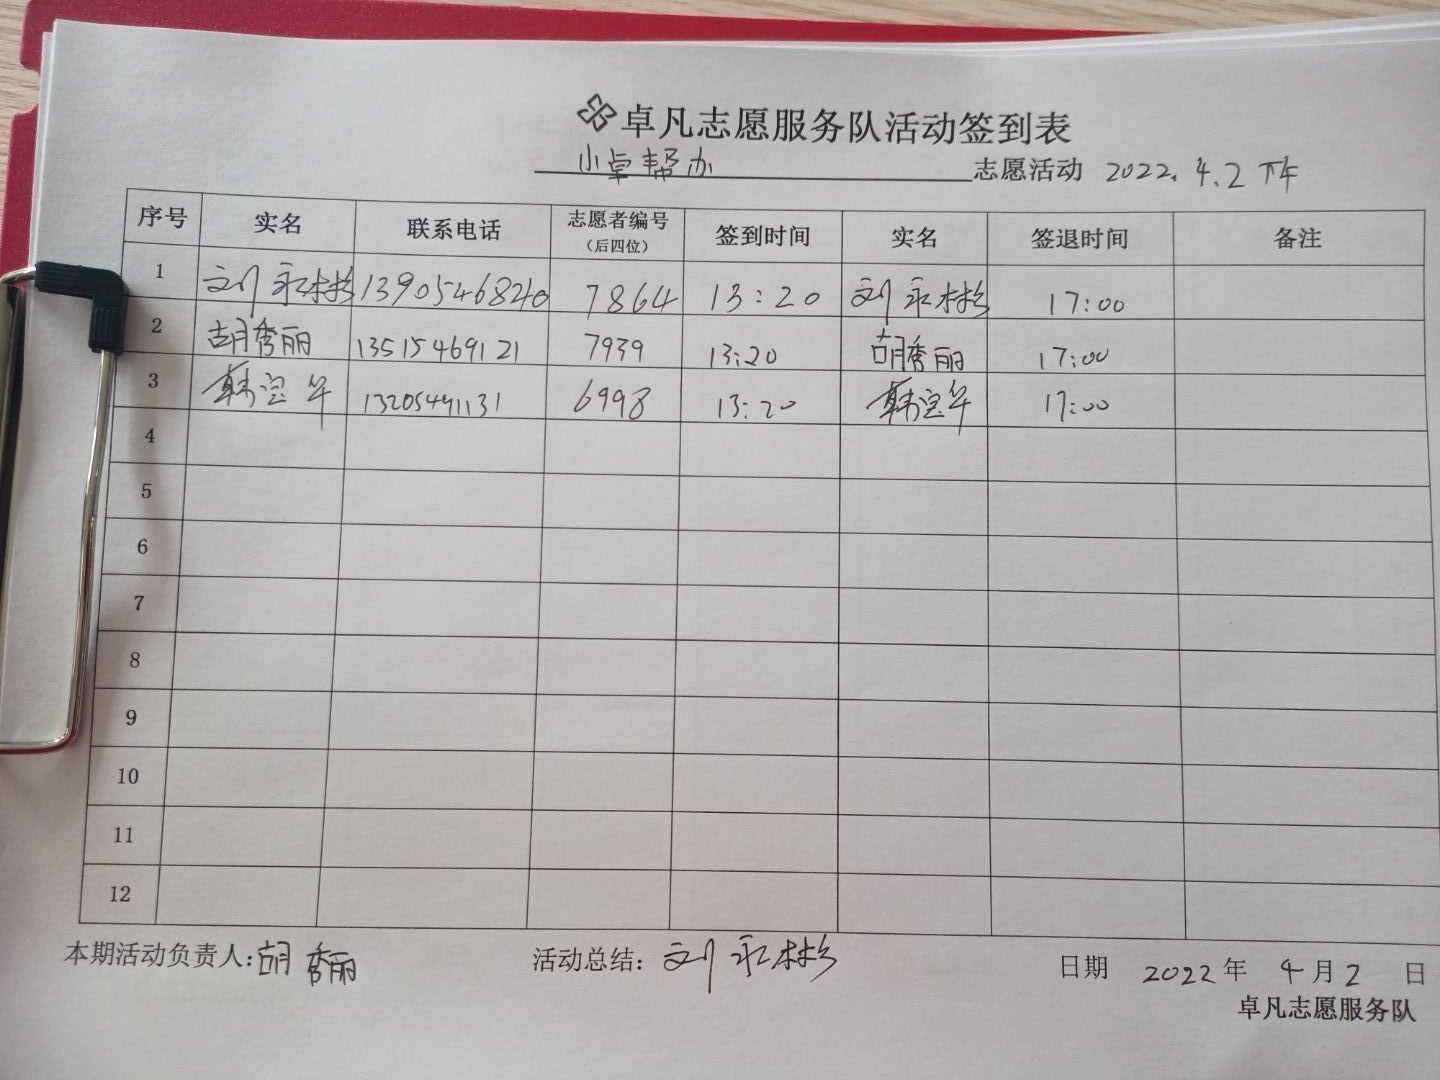 卓凡志愿服务队活动签到表
小卓帮办 志愿活动 2022.4.2 下午
序号 实名 联系电话 志愿者编号（后四位） 签到时间 实名 签退时间 备注
1 刘永彬 13905468240 7864 13:20 刘永彬 17:00
2 胡秀丽 13515469121 7939 13:20 胡秀丽 17:00
3 韩宝华 13205491131 6998 13:20 韩宝华 17:00
4
5
6
7
8
9
10
11
12
本期活动负责人:胡秀丽 活动总结：刘永彬 日期 2022年 4月2日
卓凡志愿服务队